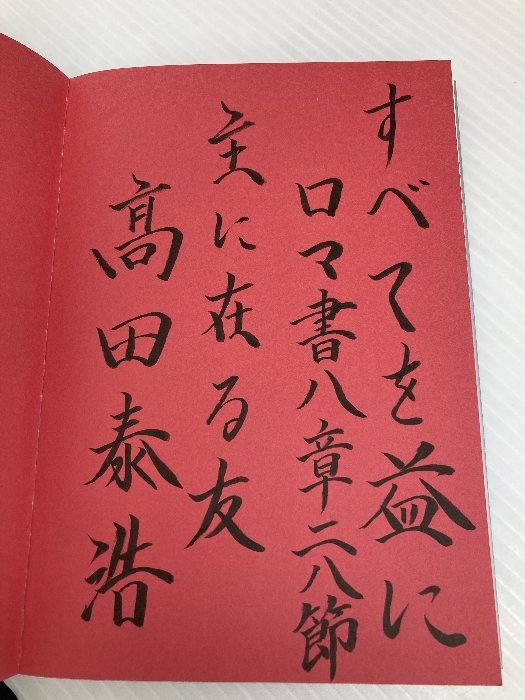 すべてを益に
ロマ書八章二八節
主に在る友
髙田泰浩